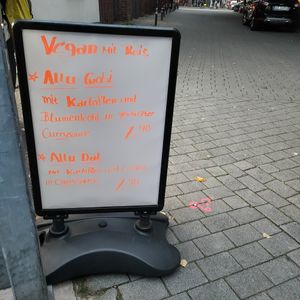 Vegan mit Reis
* Allu Gobi
mit Kartoffeln und
Blumenkohl in
Currysauce
* Allu Dal
mit Kartoffeln und
in Currysauce